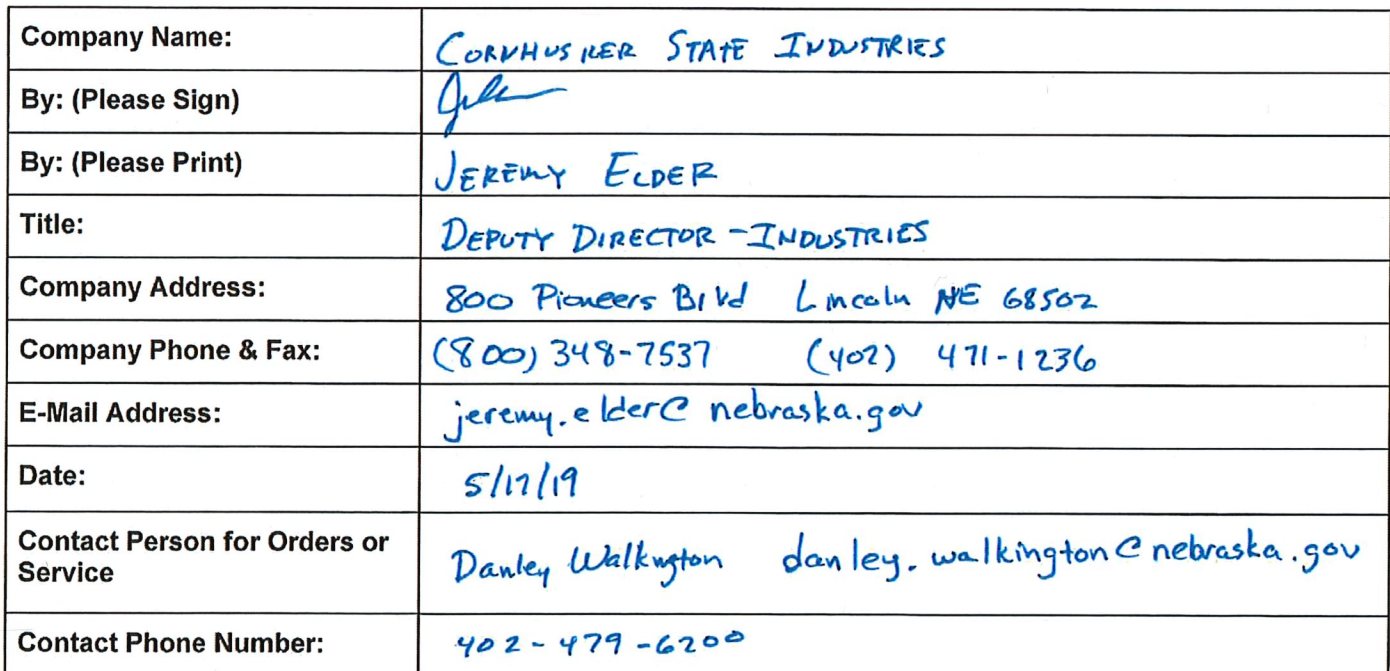 Company Name: CORNHUSKER STATE INDUSTRIES
By: (Please Sign)
By: (Please Print) JEREMY ELDER
Title: DEPUTY DIRECTOR - INDUSTRIES
Company Address: 800 Pioneers Blvd Lincoln NE 68502
Company Phone & Fax: (800) 348-7537 (402) 471-1236
E-Mail Address: jeremy.elder@nebraska.gov
Date: 5/17/19
Contact Person for Orders or
Service Danley Walkington danley.walkington@nebraska.gov
Contact Phone Number: 402-479-6200